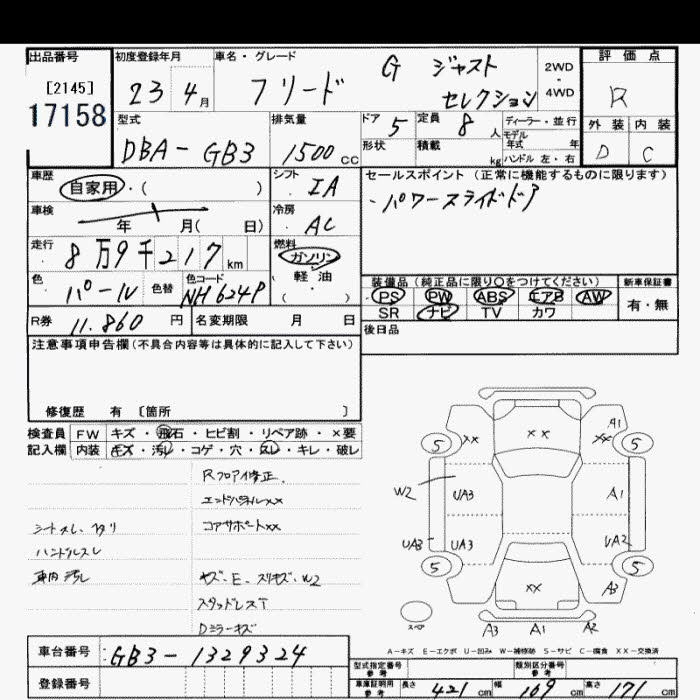 出品番号 初度登録年月 車名・グレード 評価点
[2145] 23 4月 フリード G ジャスト 2WD・4WD R
17158 セレクション
型式 排気量 ドア 定員 ディーラー・並行 外装 内装
DBA-GB3 1500cc 5 8人 モデル年式 年 D C
形状 積載 kg ハンドル 左・右
車歴 シフト セールスポイント(正常に機能するものに限ります)
自家用・( ) IA ・パワースライドドア
車検 冷房
年 月( 日) AC
走行 燃料
8万9千217km ガソリン
色 色替 色コード 軽油 装備品(純正品に限り○をつけてください) 新車保証書
パール NH624P ( ) PS PW ABS エアB AW 有・無
SR ナビ TV カワ
R券 11.860円 名変期限 月 日 後日品
注意事項申告欄(不具合内容等は具体的に記入して下さい)
修復歴 有 〔箇所 〕
検査員 FW キズ・飛石・ヒビ割・リペア跡・×要
記入欄 内装 キズ・汚レ・コゲ・穴・スレ・キレ・破レ
Rフロア修正
エンドパネルxx
コアサポートxx
ハンドルスレ
車内汚レ
キズ・E・スリキズ・W2
スタッドレスT
Dミラーキズ
xx xx A1 xx
5 5
W2 UA3 A1
UA3 UA3 UA2
5 xx 5
A3
スペア
A3 A1 A2
A-キズ E-エクボ U-凹み W-補修跡 S-サビ C-腐食 XX-交換済
車台番号 GB3-1329324
型式指定番号 参考 類別区分番号 参考
登録番号
車庫証明用 参考 長さ 421cm 幅 169cm 高さ 171cm